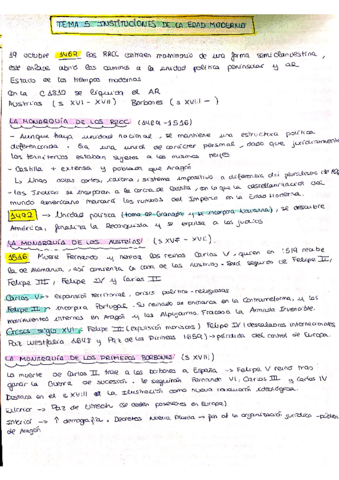 TEMA 5. INSTITUCIONES DE LA EDAD MODERNA
19 octubre 1469 los RRCC contraen matrimonio de una forma semiclandestina,
este enlace abrió los caminos a la unidad política peninsular y al
Estado de los tiempos modernos
Con la C 1830 se extinguió el AR
Austrias (s XVI - XVII) Borbones (s XVIII - )
LA MONARQUÍA DE LOS RRCC (1479-1516)
- Aunque haya unidad nacional, se mantiene una estructura política
diferenciada. Es una unión de carácter personal, dado que jurídicamente
los territorios estaban sujetos a los mismos reyes
- Castilla + extensa y poblada que Aragón
↳ Unas solas cortes, sistema impositivo a diferencia del pluralismo de AR
- las Indias se incorporan a la corona de Castilla, en lo que la castellanización del
mundo americano marcará los rumbos del Imperio en la Edad Moderna.
1492 → Unidad política (toma de Granada y se incorpora Navarra), se descubre
América, finaliza la Reconquista y se expulsa a los judíos
LA MONARQUÍA DE LOS AUSTRIAS (s XVI - XVII).
1516 Muere Fernando y hereda los reinos Carlos V, quien en 1519 recibe
la de Alemania, así comienza la casa de los Austrias → Será seguido de Felipe II,
Felipe III, Felipe IV y Carlos II
Carlos V → expansión territorial, crisis político-religiosas
Felipe II → incorpora Portugal. Su reinado se enmarca en la Contrarreforma, y los
movimientos internos en Aragón y las Alpujarras. Fracasa la Armada Invencible.
Crisis siglo XVI, Felipe III (expulsión moriscos) Felipe IV (desastres internacionales
Paz Westfalia 1648 y Paz de los Pirineos 1659) → pérdida del control de Europa.
LA MONARQUÍA DE LOS PRIMEROS BORBONES (s XVIII)
La muerte de Carlos II trae a los borbones a España → Felipe V reinó tras
ganar la Guerra de sucesión. Le seguirán Fernando VI, Carlos III y Carlos IV
Destaca en el s XVIII la Ilustración como nueva renovación ideológica.
Exterior → Paz de Utrech (se ceden posesiones en Europa)
Interior → ↑ demografía. Decretos Nueva Planta → fin de la organización jurídico-política
de Aragón